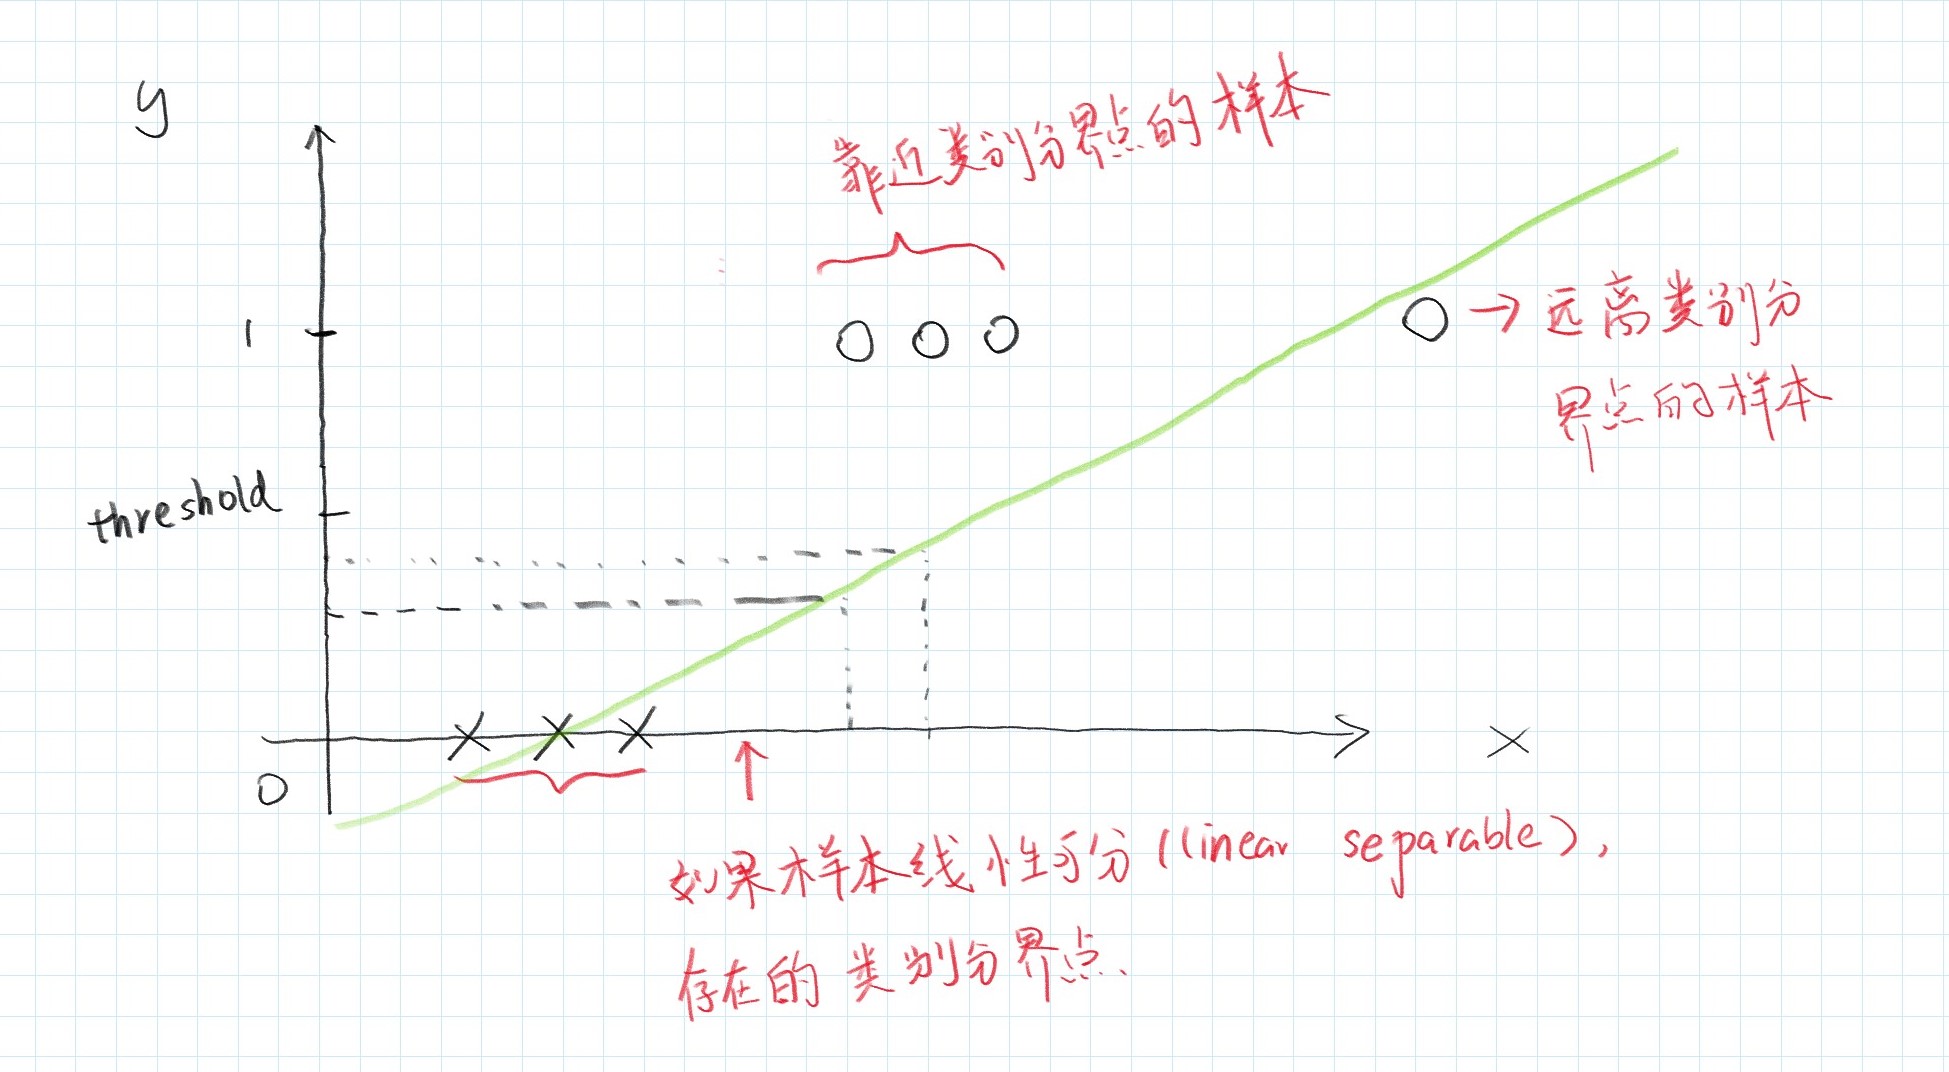 y
靠近类别分界点的样本
1
→ 远离类别分
界点的样本
threshold
0
x
如果样本线性可分 (linear separable),
存在的类别分界点、